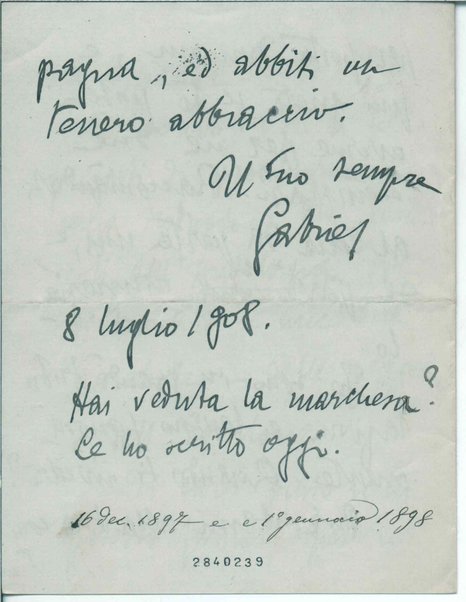 pagna, ed abbiti un
tenero abbraccio.
Il tuo sempre
Gabriel
8 luglio 1908.
Has veduta la marchesa?
Le ho scritto oggi.
16 dec. 1897 e e 1º gennaio 1898
2840239